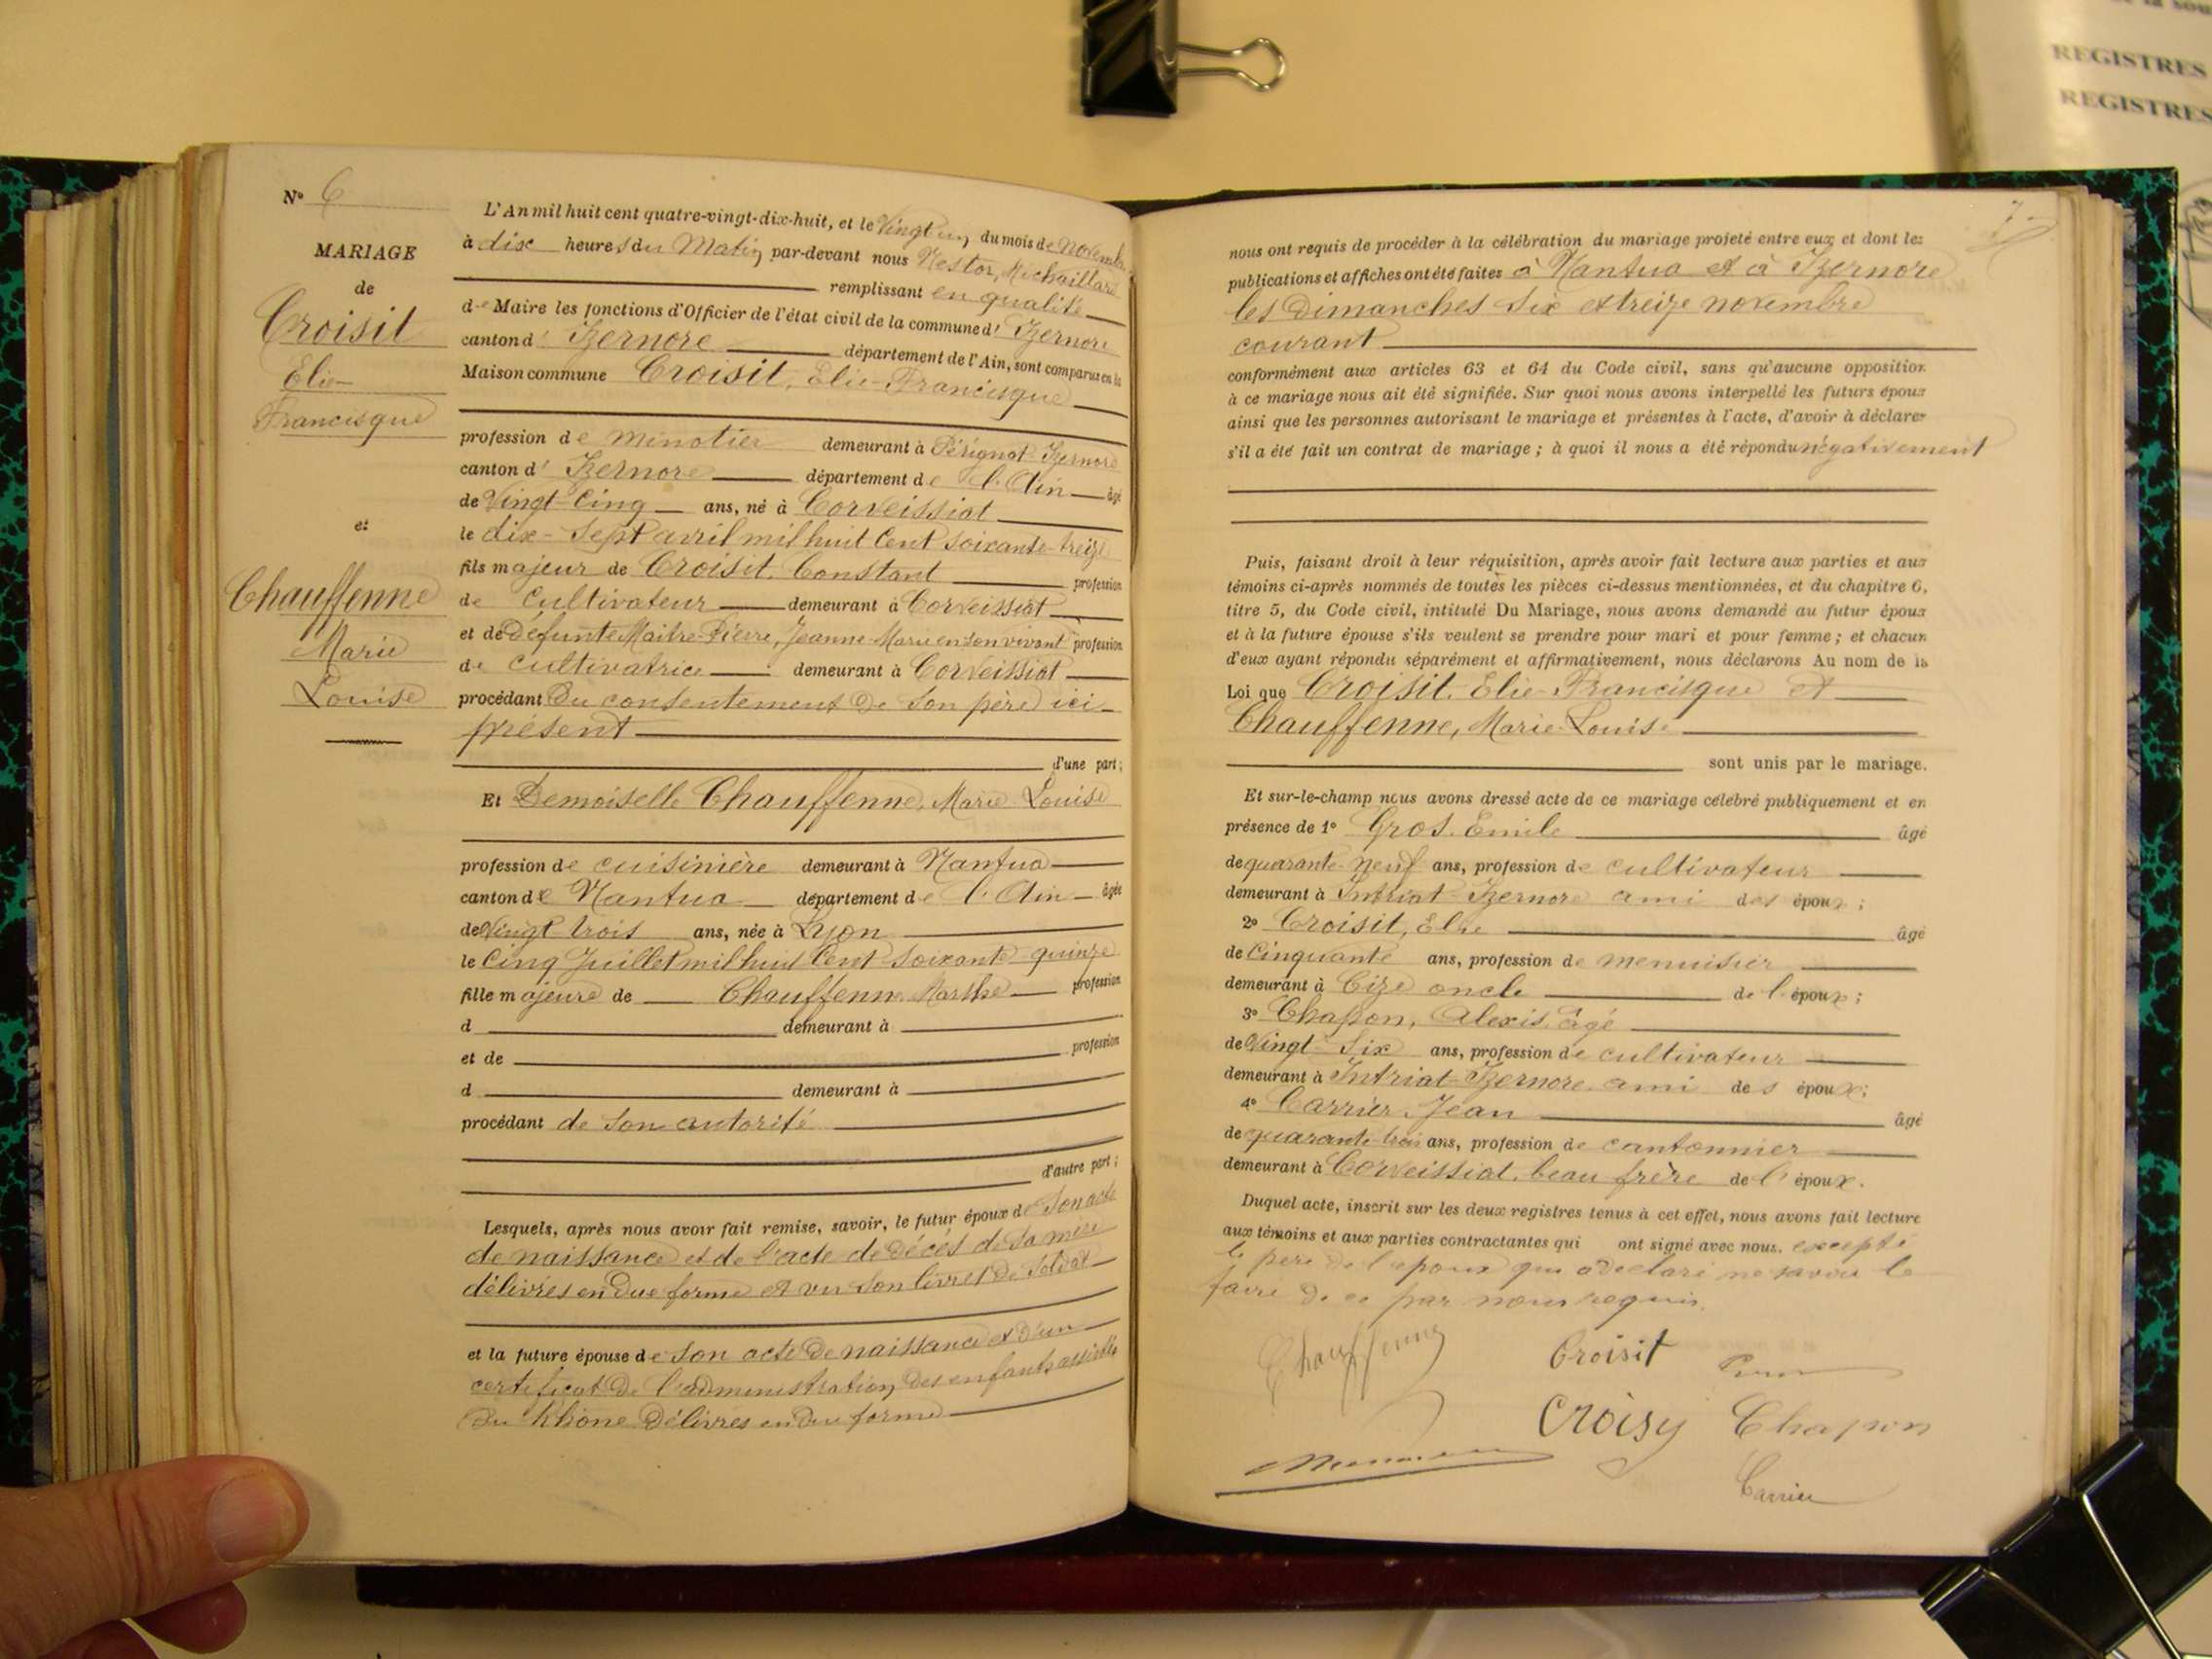 N° 6
MARIAGE
de
Croisit
Elie-
Francisque
et
Chauffenne
Marie
Louise
L'An mil huit cent quatre-vingt-dix-huit, et le Vingt un du mois de Novembre
à dix heures du Matin par-devant nous Nestor, Michaillard
remplissant en qualité
de Maire les fonctions d'Officier de l'état civil de la commune d' Izernore
canton d' Izernore département de l'Ain, sont comparus en la
Maison commune Croisit, Elie-Francisque
profession de minotier demeurant à Pérignat Izernore
canton d' Izernore département de l'Ain âgé
de Vingt-Cinq ans, né à Corveissiat
le dix-Sept avril mil huit Cent Soixante-treize
fils majeur de Croisit, Constant profession
de Cultivateur demeurant à Corveissiat
et de Défunte Maitre-Pierre, Jeanne-Marie en son vivant profession
de Cultivatrice demeurant à Corveissiat
procédant Du consentement De Son père ici
présent
d'une part;
Et Demoiselle Chauffenne, Marie Louise
profession de cuisinière demeurant à Nantua
canton de Nantua département de l'Ain âgée
de Vingt trois ans, née à Lyon
le Cinq Juillet mil huit Cent Soixante quinze
fille majeure de Chauffenne Marthe profession
d demeurant à
et de profession
d demeurant à
procédant de Son autorité
d'autre part;
Lesquels, après nous avoir fait remise, savoir, le futur époux de Son acte
de naissance et de l'acte de Décès de Sa mère
délivrés en Due forme et vu Son livret De Soldat
et la future épouse de Son acte De naissance et D'un
certificat De l'administration Des enfants assistés
Du Rhône Délivrés en Due forme
7
nous ont requis de procéder à la célébration du mariage projeté entre eux et dont les
publications et affiches ont été faites à Nantua et à Izernore
les Dimanches Six et treize novembre
courant
conformément aux articles 63 et 64 du Code civil, sans qu'aucune opposition
à ce mariage nous ait été signifiée. Sur quoi nous avons interpellé les futurs époux
ainsi que les personnes autorisant le mariage et présentes à l'acte, d'avoir à déclarer
s'il a été fait un contrat de mariage; à quoi il nous a été répondu négativement
Puis, faisant droit à leur réquisition, après avoir fait lecture aux parties et aux
témoins ci-après nommés de toutes les pièces ci-dessus mentionnées, et du chapitre 6,
titre 5, du Code civil, intitulé Du Mariage, nous avons demandé au futur époux
et à la future épouse s'ils veulent se prendre pour mari et pour femme; et chacun
d'eux ayant répondu séparément et affirmativement, nous déclarons Au nom de la
Loi que Croisit, Elie-Francisque et
Chauffenne, Marie-Louise
sont unis par le mariage.
Et sur-le-champ nous avons dressé acte de ce mariage célébré publiquement et en
présence de 1° Gros, Emile âgé
de quarante-neuf ans, profession de cultivateur
demeurant à Intriat-Izernore ami des époux;
2° Croisit, Elie âgé
de Cinquante ans, profession de menuisier
demeurant à Cize oncle de l'époux;
3° Chapon, Alexis, âgé
de Vingt-Six ans, profession de cultivateur
demeurant à Intriat-Izernore, ami des époux;
4° Carrier, Jean âgé
de quarante-trois ans, profession de cantonnier
demeurant à Corveissiat, beau frère de l'époux.
Duquel acte, inscrit sur les deux registres tenus à cet effet, nous avons fait lecture
aux témoins et aux parties contractantes qui ont signé avec nous. excepté
le père de l'époux qui a déclaré ne savoir le
faire de ce par nous requis.
Chauffenne
Croisit
Croisy Chapon
Carrier
REGISTRES
REGISTRES